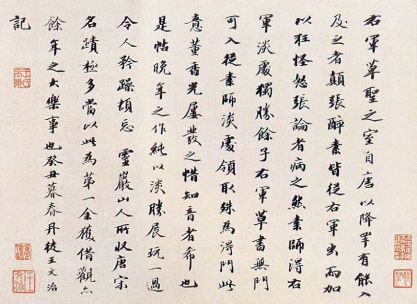 右軍草聖之室自唐以降罕有能入
及之者顛張醉素皆從右軍出而加
以狂怪怒張論者病之然素師得右
軍淡處獨勝餘子右軍草書無門
可入從素師淡處領取殊為得門此
意董香光屢發之惜知音者希也
是帖晚年之作純以淡勝展玩一過
令人矜躁頓忘靈巖山人所收唐宋
名蹟極多當以此為第一余獲借觀亦
餘年之大樂事也癸丑暮春丹徒王文治
記